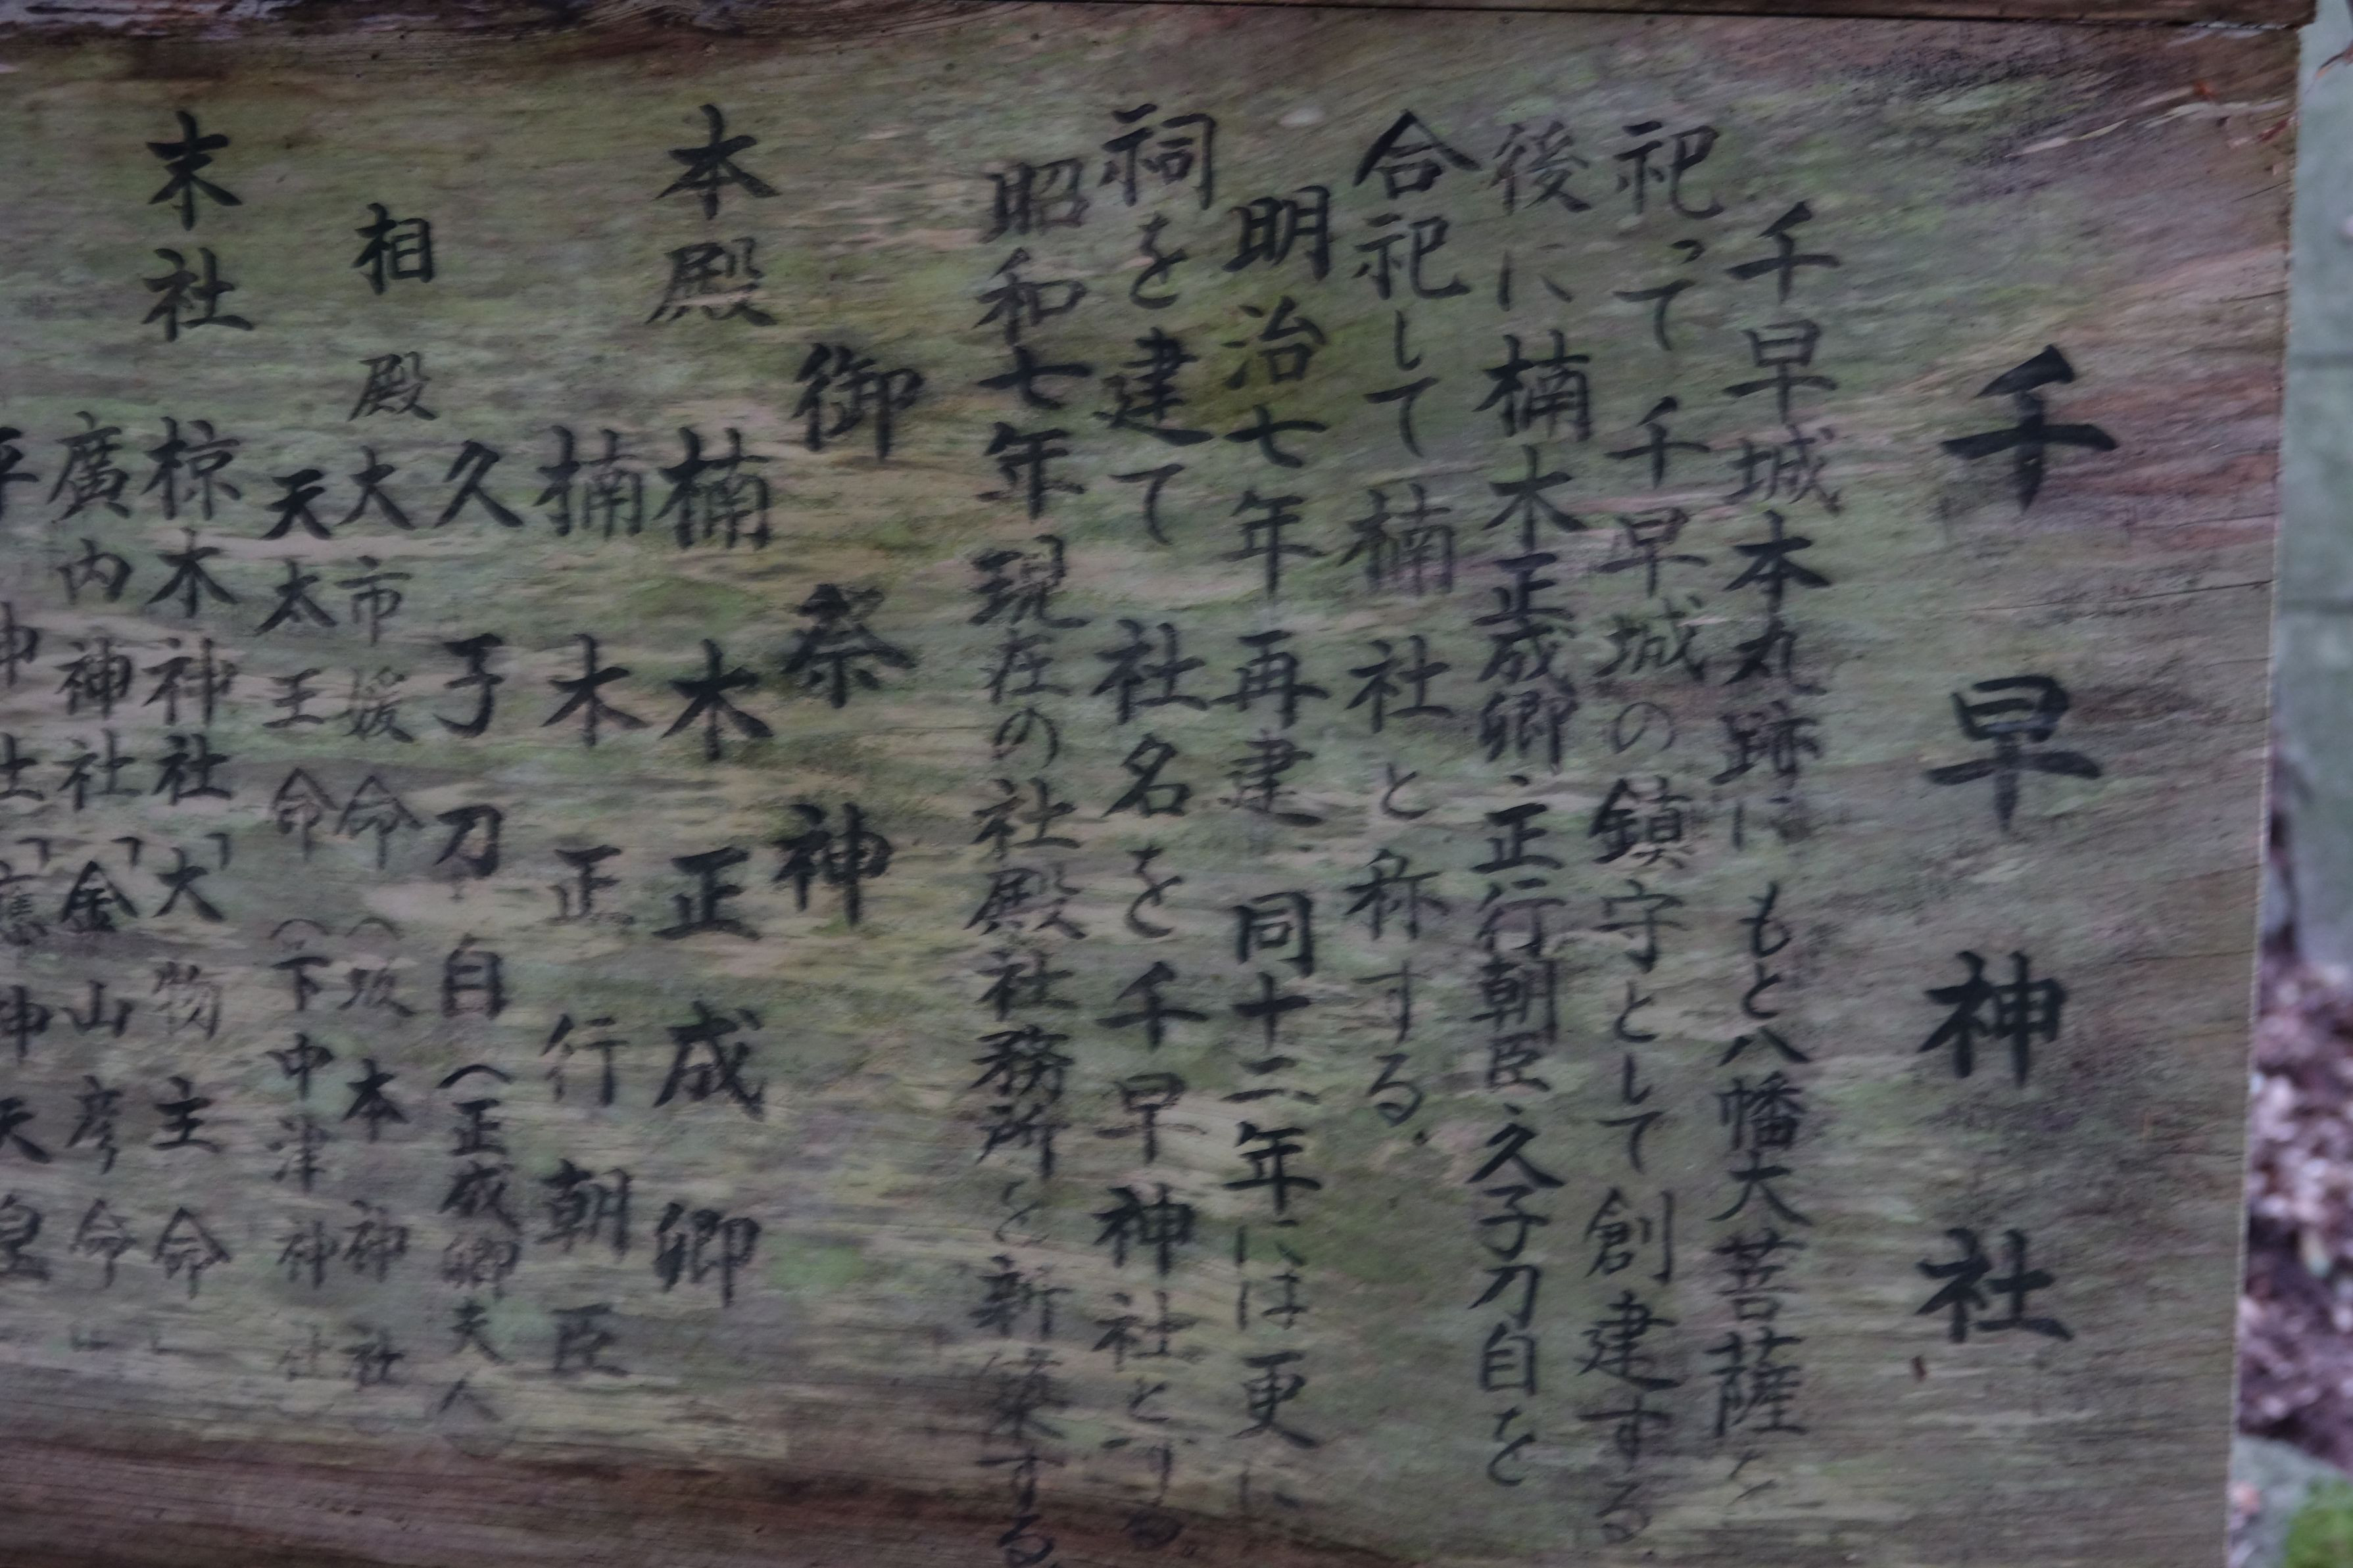 千早神社
千早城本丸跡に もと八幡大菩薩を
祀って 千早城の鎮守として 創建する
後に楠木正成卿、正行朝臣、久子刀自を
合祀して 楠社と称する。
明治七年再建、同十二年には更に
祠を建て 社名を千早神社とする
昭和七年現在の社殿社務所を新築する
御祭神
本殿 楠木正成卿
楠木正行朝臣
久子刀自（正成卿夫人）
相殿 大市媛命（坂本神社
天太王命（下中津神社
末社 椋木神社「大物主命」
廣内神社「金山彦命」
神社「應神天皇